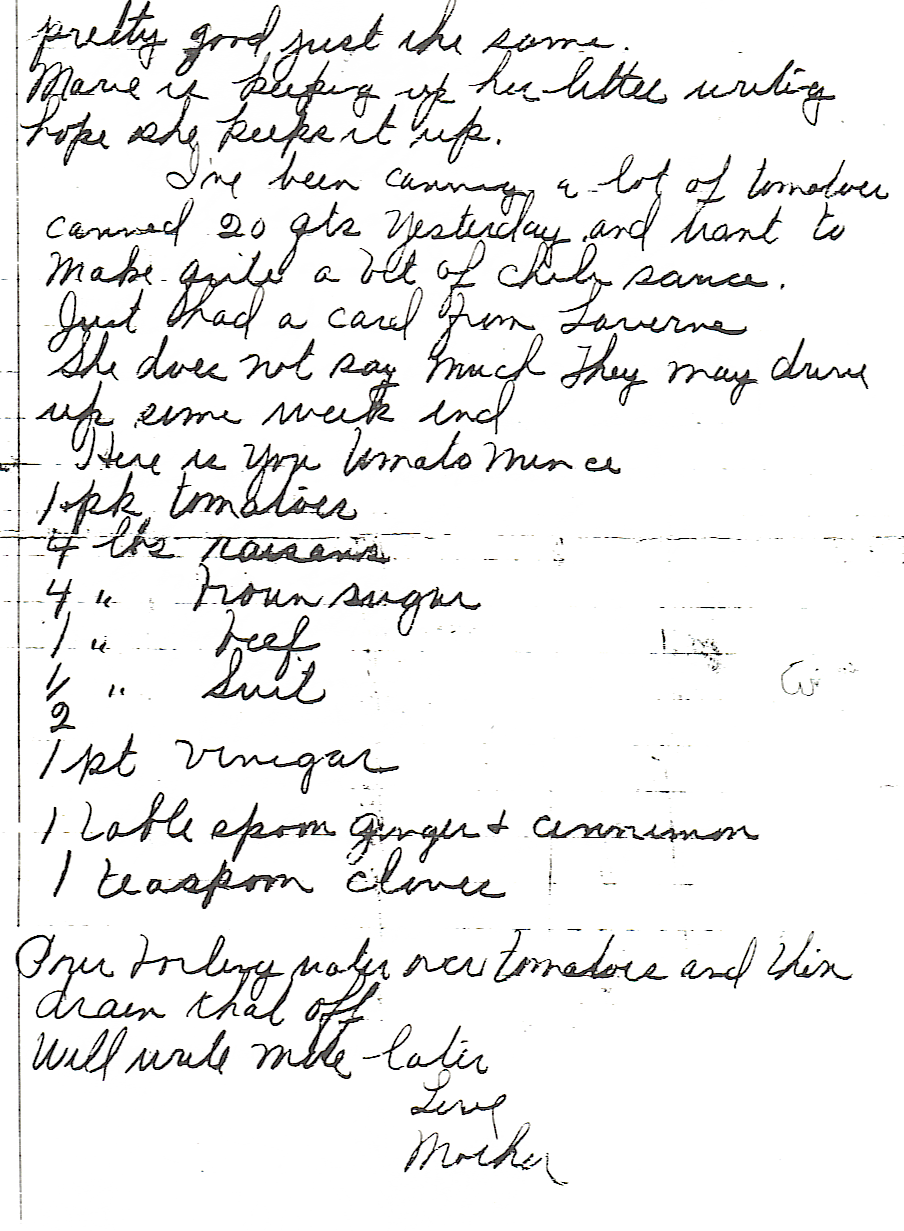 pretty good just the same.
Marie is keeping up her letter writing
hope she keeps it up.
I've been canning a lot of tomatoes
canned 20 qts Yesterday and want to
Make quite a bit of chili sauce.
Just had a card from Laverne
She does not say Much They may drive
up some week end
Here is your tomato Mince
1 pk tomatoes
4 lbs raisans
4 " broun sugar
1 " beef
1/2 " Suit
1 pt vinegar
1 table spoon ginger + cinnimon
1 teaspoon cloves
Pour boiling water over tomatoes and then
drain that off
Will write more later
Love
Mother